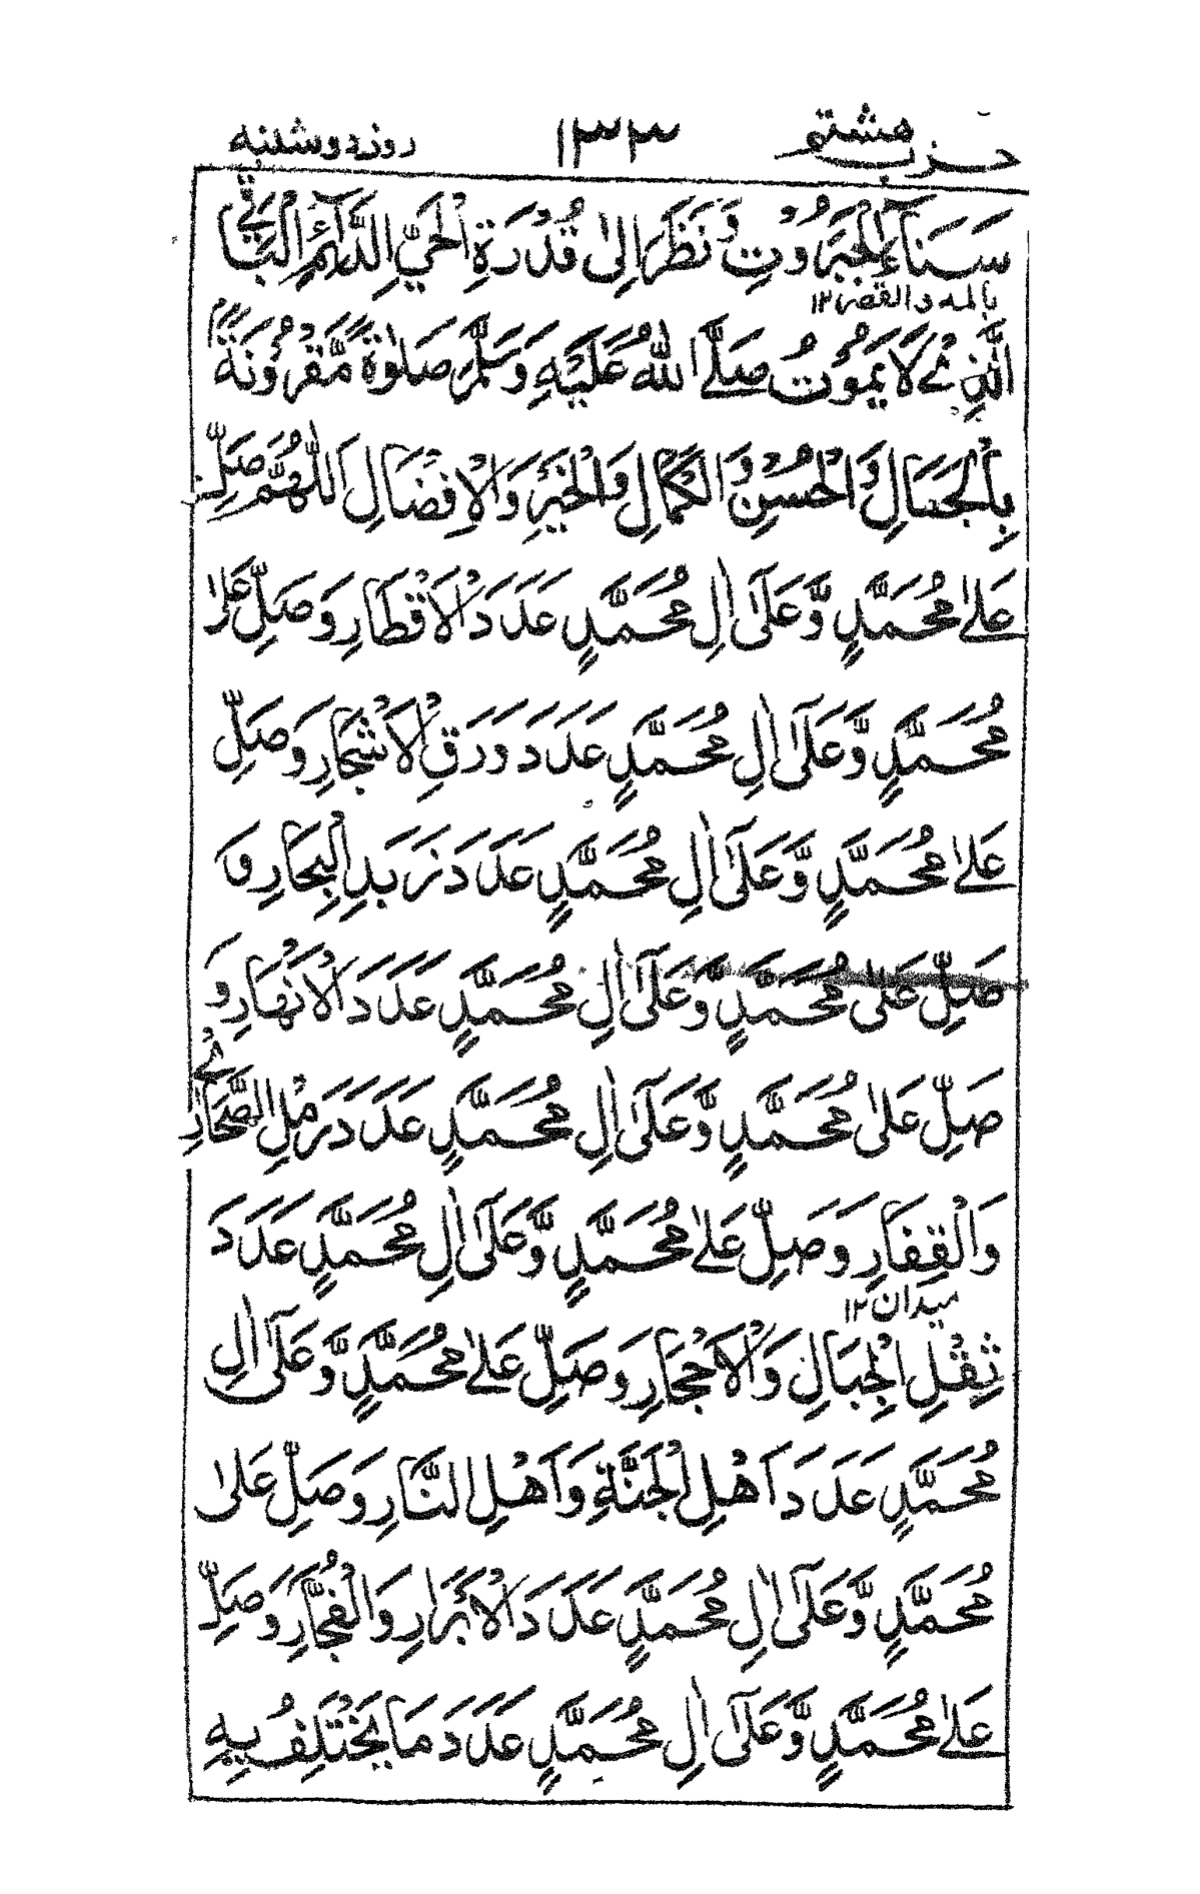 حزب هشتم ۱۳۳ روز دوشنبه
سَنَاءِ الْجَبَرُوْتِ وَنَظَرَ اِلٰى قُدْرَةِ الْحَيِّ الدَّآئِمِ الْبَاقِي
بالمد والقصر ۱۲
الَّذِيْ لَا يَمُوْتُ صَلَّى اللّٰهُ عَلَيْهِ وَسَلَّمَ صَلٰوةً مَّقْرُوْنَةً
بِالْجَمَالِ وَالْحُسْنِ وَالْكَمَالِ وَالْخَيْرِ وَالْاِفْضَالِ اَللّٰهُمَّ صَلِّ
عَلٰى مُحَمَّدٍ وَّعَلٰٓى اٰلِ مُحَمَّدٍ عَدَدَ الْاَقْطَارِ وَصَلِّ عَلٰى
مُحَمَّدٍ وَّعَلٰٓى اٰلِ مُحَمَّدٍ عَدَدَ وَرَقِ الْاَشْجَارِ وَصَلِّ
عَلٰى مُحَمَّدٍ وَّعَلٰٓى اٰلِ مُحَمَّدٍ عَدَدَ زَبَدِ الْبِحَارِ وَ
صَلِّ عَلٰى مُحَمَّدٍ وَّعَلٰٓى اٰلِ مُحَمَّدٍ عَدَدَ الْاَنْهَارِ وَ
صَلِّ عَلٰى مُحَمَّدٍ وَّعَلٰٓى اٰلِ مُحَمَّدٍ عَدَدَ رَمْلِ الصَّحَارِيْ
وَالْقِفَارِ وَصَلِّ عَلٰى مُحَمَّدٍ وَّعَلٰٓى اٰلِ مُحَمَّدٍ عَدَدَ
میدان ۱۲
ثِقْلِ الْجِبَالِ وَالْاَحْجَارِ وَصَلِّ عَلٰى مُحَمَّدٍ وَّعَلٰٓى اٰلِ
مُحَمَّدٍ عَدَدَ اَهْلِ الْجَنَّةِ وَاَهْلِ النَّارِ وَصَلِّ عَلٰى
مُحَمَّدٍ وَّعَلٰٓى اٰلِ مُحَمَّدٍ عَدَدَ الْاَبْرَارِ وَالْفُجَّارِ وَصَلِّ
عَلٰى مُحَمَّدٍ وَّعَلٰٓى اٰلِ مُحَمَّدٍ عَدَدَ مَا يَخْتَلِفُ بِهِ